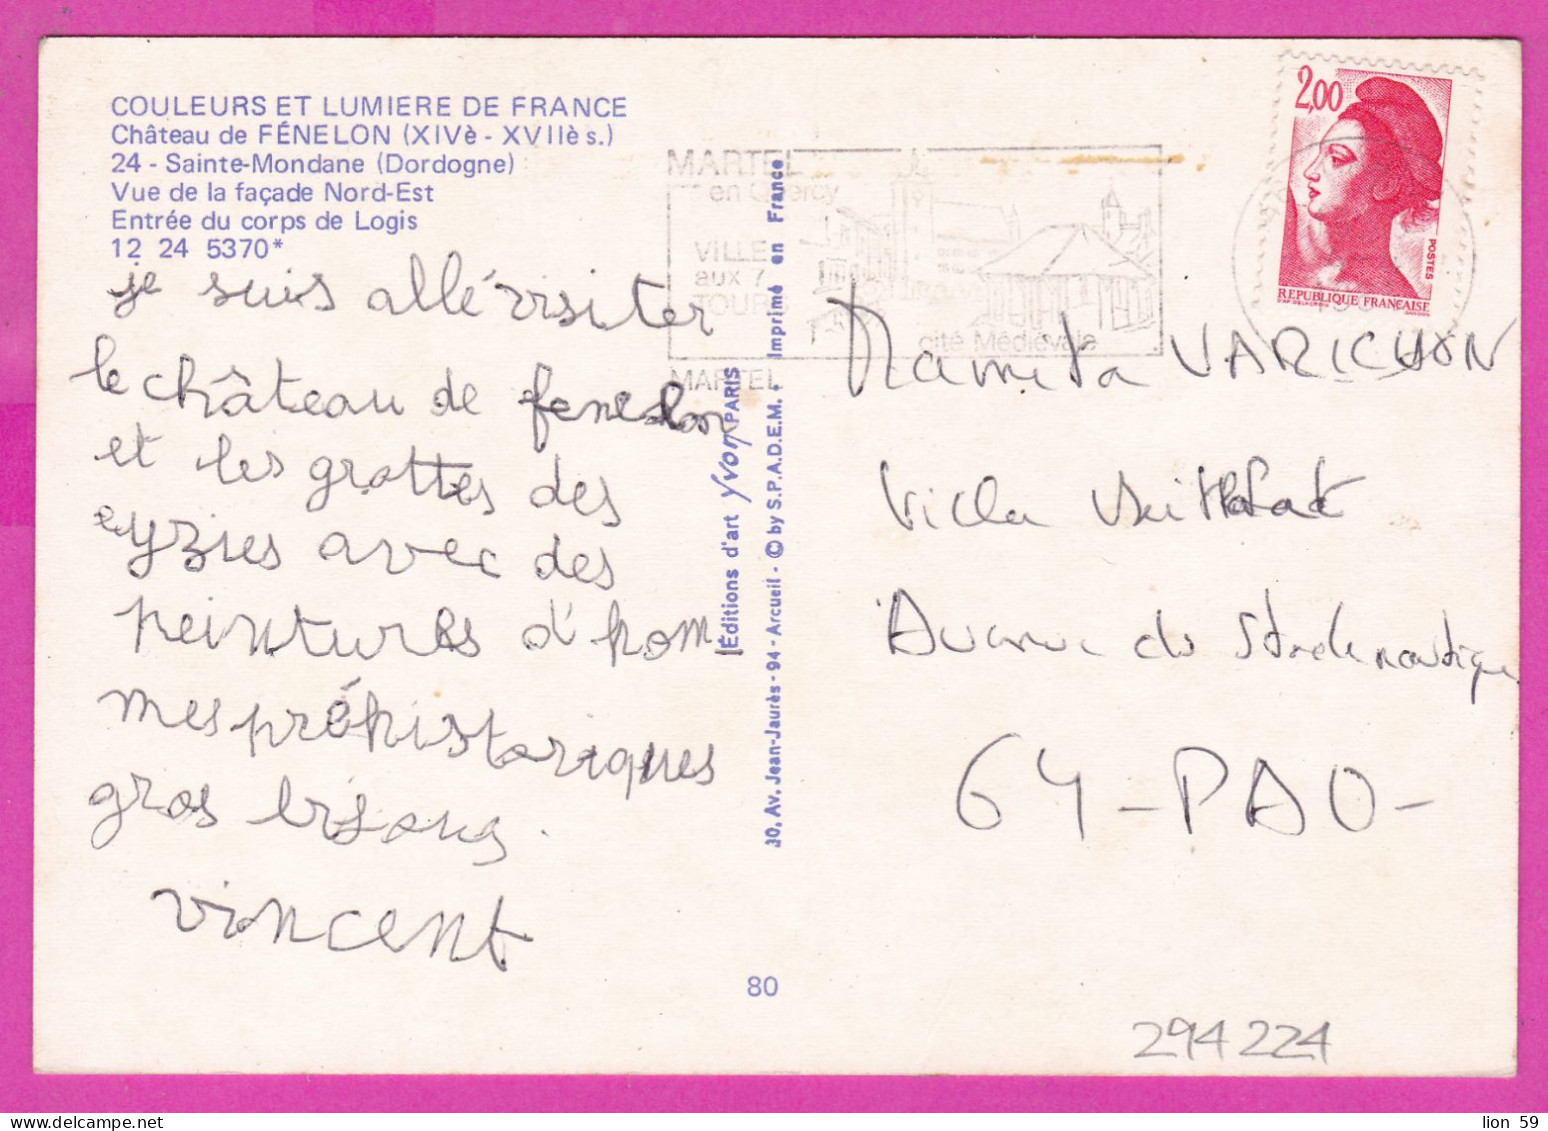 COULEURS ET LUMIERE DE FRANCE
Château de FÉNELON (XIVè - XVIIè s.)
24 - Sainte-Mondane (Dordogne)
Vue de la façade Nord-Est
Entrée du corps de Logis
12 24 5370*
je suis allé visiter
le château de fenelon
et les grottes des
eyzies avec des
peintures d'hom
mes préhistoriques
gros bisous.
vincent
Éditions d'art Yvon PARIS
30, Av. Jean-Jaurès - 94 - Arcueil - © by S.P.A.D.E.M. - Imprimé en France
80
MARTEL
en Quercy
VILLE
aux 7
TOURS
cité Médiévale
MARTEL
2,00
POSTES
REPUBLIQUE FRANÇAISE
Mamita VARICHON
Villa
Avenue du Stade nautique
64 - PAU -
294224
lion 59